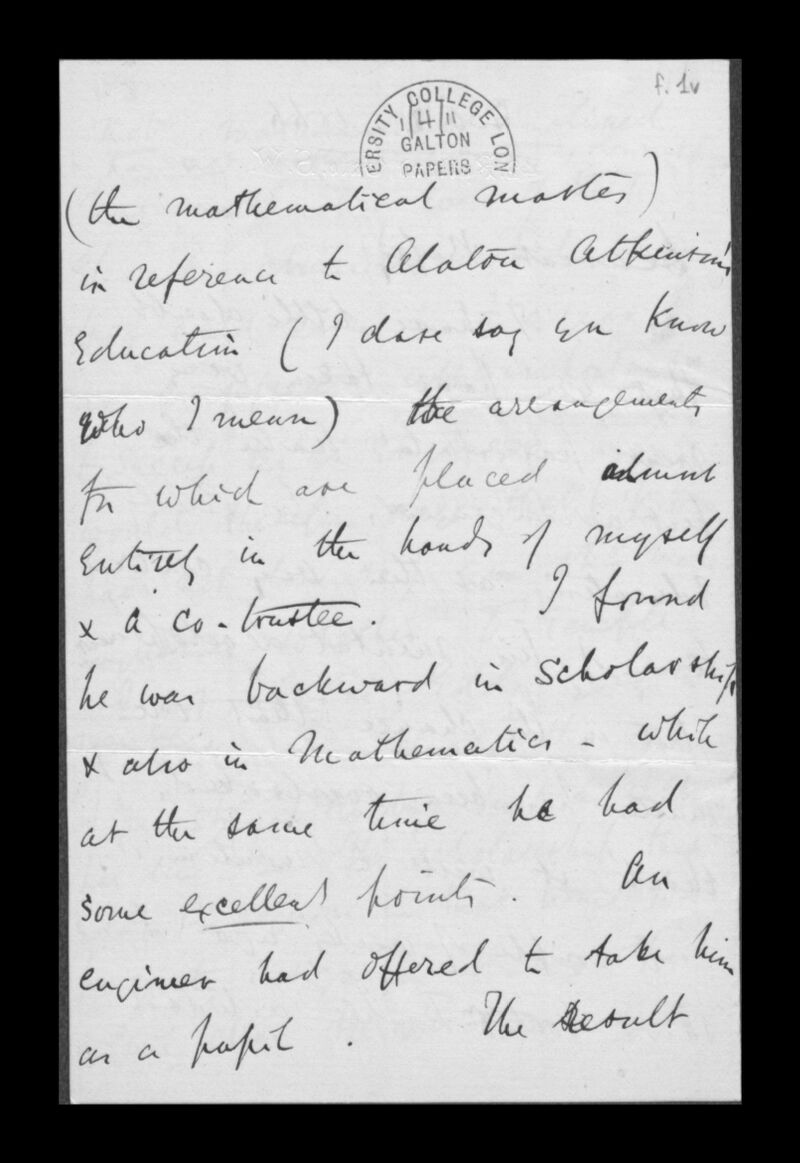 f. 1v
ERSITY COLLEGE LON
1/4/11
GALTON
PAPERS
(the mathematical master)
in reference to Alston Atkinson's
Education (I dare say you know
who I mean) the arrangements
for which are placed almost
Entirely in the hands of myself
& a co-trustee. I found
he was backward in Scholarship
& also in Mathematics - while
at the same time he had
some excellent points. An
engineer had offered to take him
as a pupil. The Result